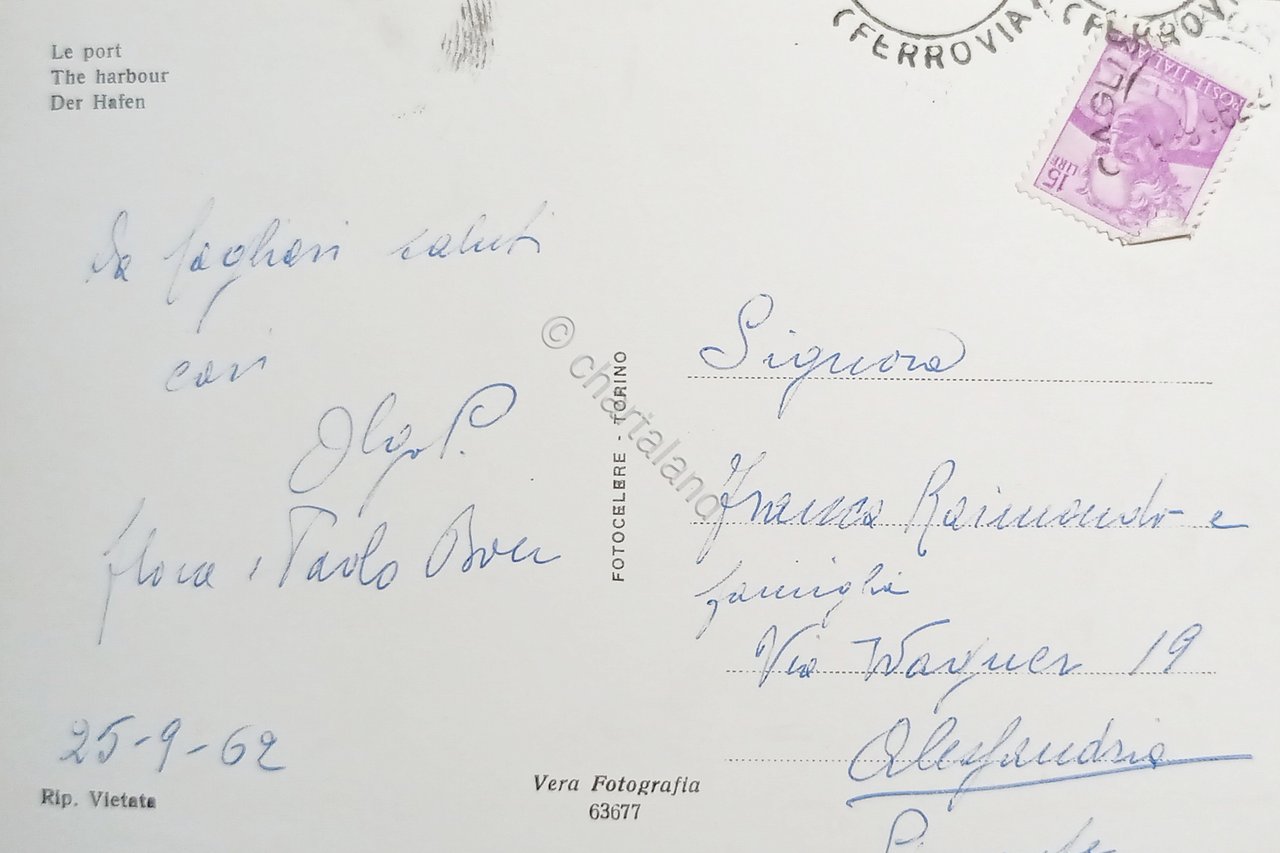 Le port
The harbour
Der Hafen
(FERROVIA
(FERROV
CAGLI
POSTE ITALIA
15
LIRE
Da Cagliari saluti
cari
Olga P.
Flora e Paolo
25-9-62
Rip. Vietata
© chartaland
FOTOCELERE - TORINO
Vera Fotografia
63677
Signora
Franca Raimondo e
famiglia
Via Wagner 19
Alessandria